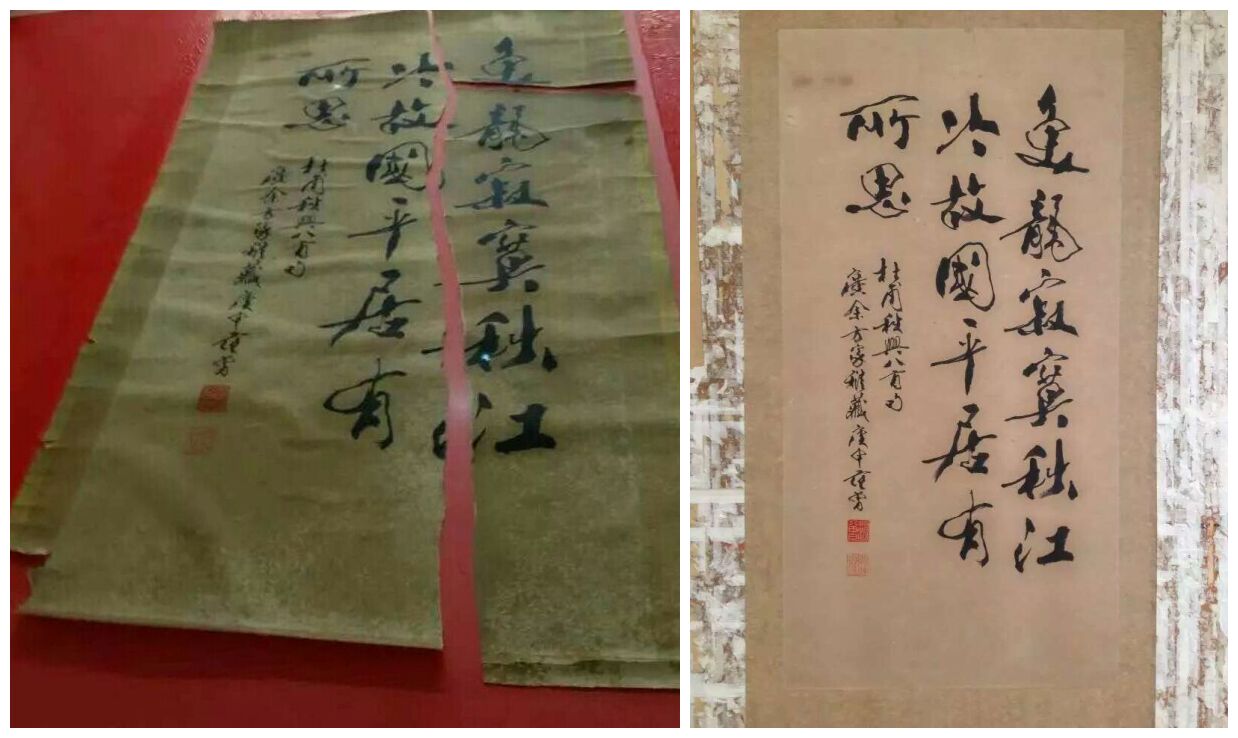 魚龍寂寞秋江
冷故國平居有
所思
杜甫秋興八首句
余方家雅藏庚申
魚龍寂寞秋江
冷故國平居有
所思
杜甫秋興八首句
余方家雅藏庚申